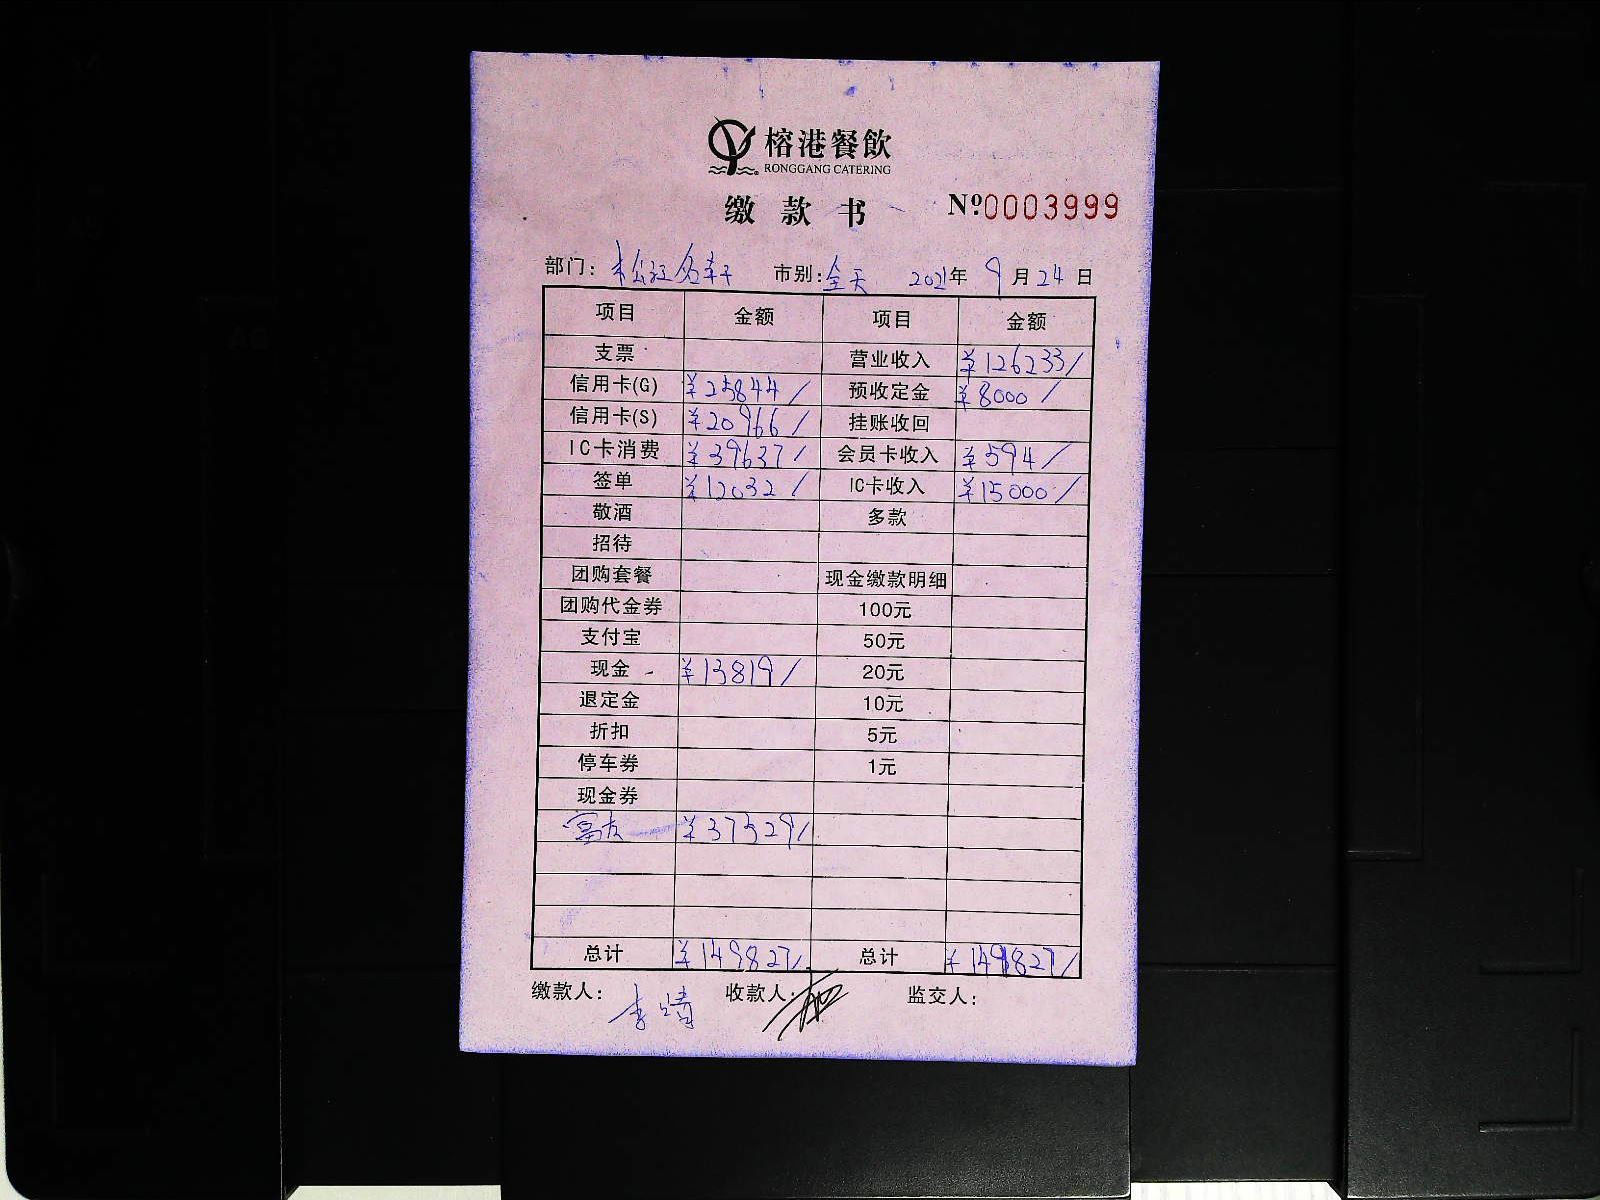 榕港餐飲
RONGGANG CATERING
缴款书 Nº0003999
部门：松江名轩 市别：全天 2021年9月24日
项目 金额 项目 金额
支票 营业收入 ¥126233/
信用卡(G) ¥25844/ 预收定金 ¥8000/
信用卡(S) ¥20966/ 挂账收回
IC卡消费 ¥39637/ 会员卡收入 ¥594/
签单 ¥12032/ IC卡收入 ¥15000/
敬酒 多款
招待
团购套餐 现金缴款明细
团购代金券 100元
支付宝 50元
现金 ¥13819/ 20元
退定金 10元
折扣 5元
停车券 1元
现金券
富友 ¥37529/
总计 ¥149827/ 总计 ¥149827/
缴款人：李婧 收款人： 监交人：